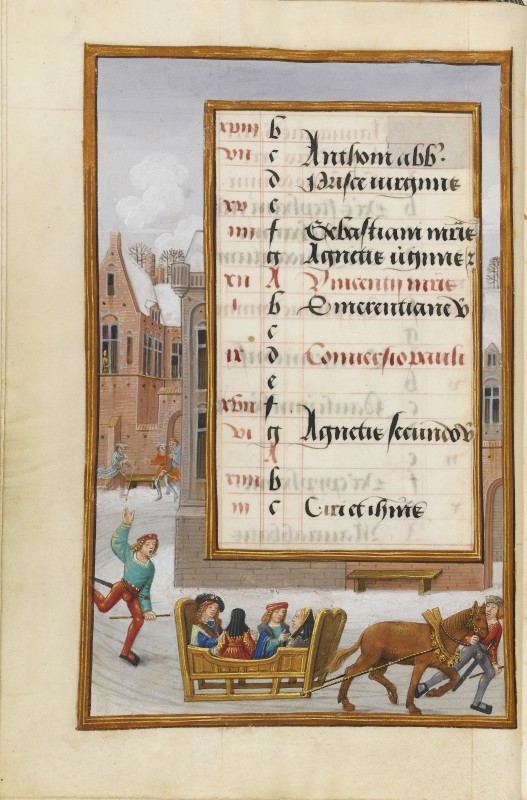 xviii b
vii c Anthoni abb'.
d Prisce virginis
xv e
iiii f Sebastiani mr̄is
g Agnetis v̄ginis
xii A Vincentij mr̄is
i b Emerentiane v
c
ix d Conversio pauli
e
xvii f
vi g Agnetis secundo v
A
xiiii b
iii c